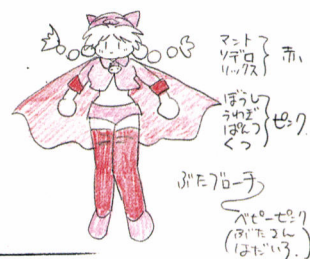 マント
ソデロ
ソックス
赤
ぼうし
うわぎ
ぱんつ
くつ
ピンク
ぶたブローチ
ベビーピンク
(ぶたさん
はだいろ)